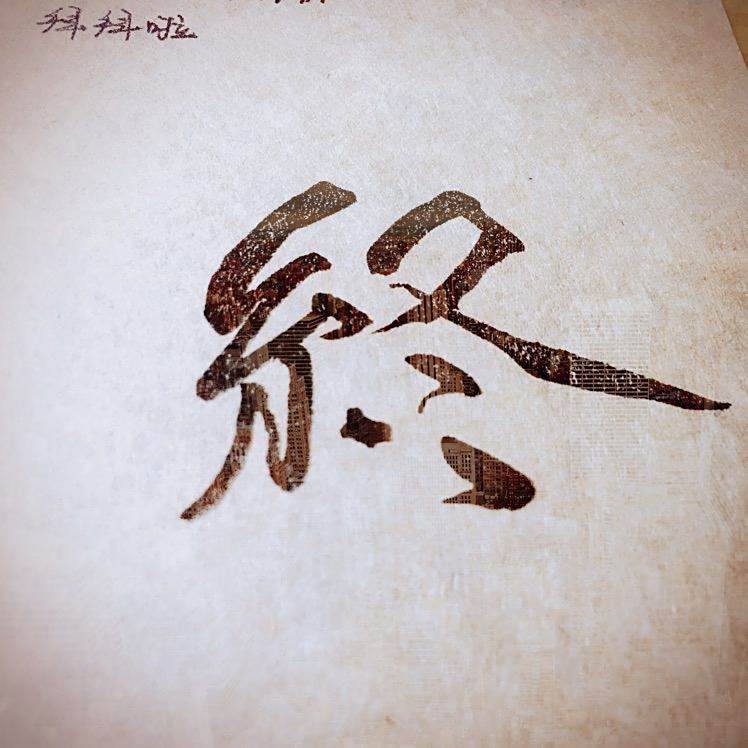 拜拜啦
終